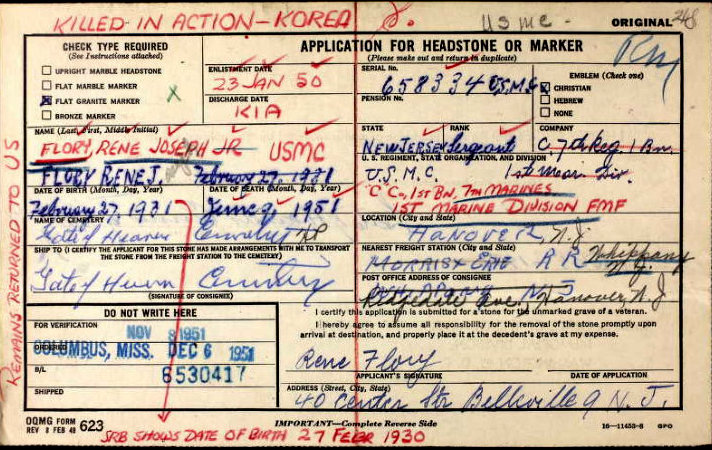 KILLED IN ACTION - KOREA
USMC
ORIGINAL
CHECK TYPE REQUIRED
(See Instructions attached)
UPRIGHT MARBLE HEADSTONE
FLAT MARBLE MARKER
FLAT GRANITE MARKER
BRONZE MARKER
X
APPLICATION FOR HEADSTONE OR MARKER
(Please make out and return in duplicate)
ENLISTMENT DATE
23 JAN 50
DISCHARGE DATE
KIA
SERIAL No.
658334 U.S.M.C.
PENSION No.
EMBLEM (Check one)
CHRISTIAN
HEBREW
NONE
NAME (Last, First, Middle Initial)
FLORY, RENE JOSEPH JR USMC
FLORY RENE J. February 27, 1931
STATE
NEW JERSEY
RANK
Sergeant
COMPANY
C 7th Reg 1 Bn.
U. S. REGIMENT, STATE ORGANIZATION, AND DIVISION
U.S.M.C. 1st Mar. Div.
"C" Co, 1ST BN, 7TH MARINES
1ST MARINE DIVISION FMF
DATE OF BIRTH (Month, Day, Year)
February 27, 1931
DATE OF DEATH (Month, Day, Year)
June 9, 1951
NAME OF CEMETERY
Gate of Heaven Cemetery
LOCATION (City and State)
HANOVER, N.J.
SHIP TO (I CERTIFY THE APPLICANT FOR THIS STONE HAS MADE ARRANGEMENTS WITH ME TO TRANSPORT
THE STONE FROM THE FREIGHT STATION TO THE CEMETERY)
Gate of Heaven Cemetery
(SIGNATURE OF CONSIGNEE)
NEAREST FREIGHT STATION (City and State)
RR Whippany N.J.
POST OFFICE ADDRESS OF CONSIGNEE
Ridgedale Ave. Hanover, N.J.
DO NOT WRITE HERE
FOR VERIFICATION
NOV 8 1951
ORDERED
COLUMBUS, MISS. DEC 6 1951
B/L
6530417
SHIPPED
I certify this application is submitted for a stone for the unmarked grave of a veteran.
I hereby agree to assume all responsibility for the removal of the stone promptly upon
arrival at destination, and properly place it at the decedent's grave at my expense.
Rene Flory
APPLICANT'S SIGNATURE
DATE OF APPLICATION
ADDRESS (Street, City, State)
40 Center Str Belleville 9 N.J.
OQMG FORM
REV 8 FEB 49 623
IMPORTANT—Complete Reverse Side
16—11453-6 GPO
SRB SHOWS DATE OF BIRTH 27 FEBR 1930
REMAINS RETURNED TO US